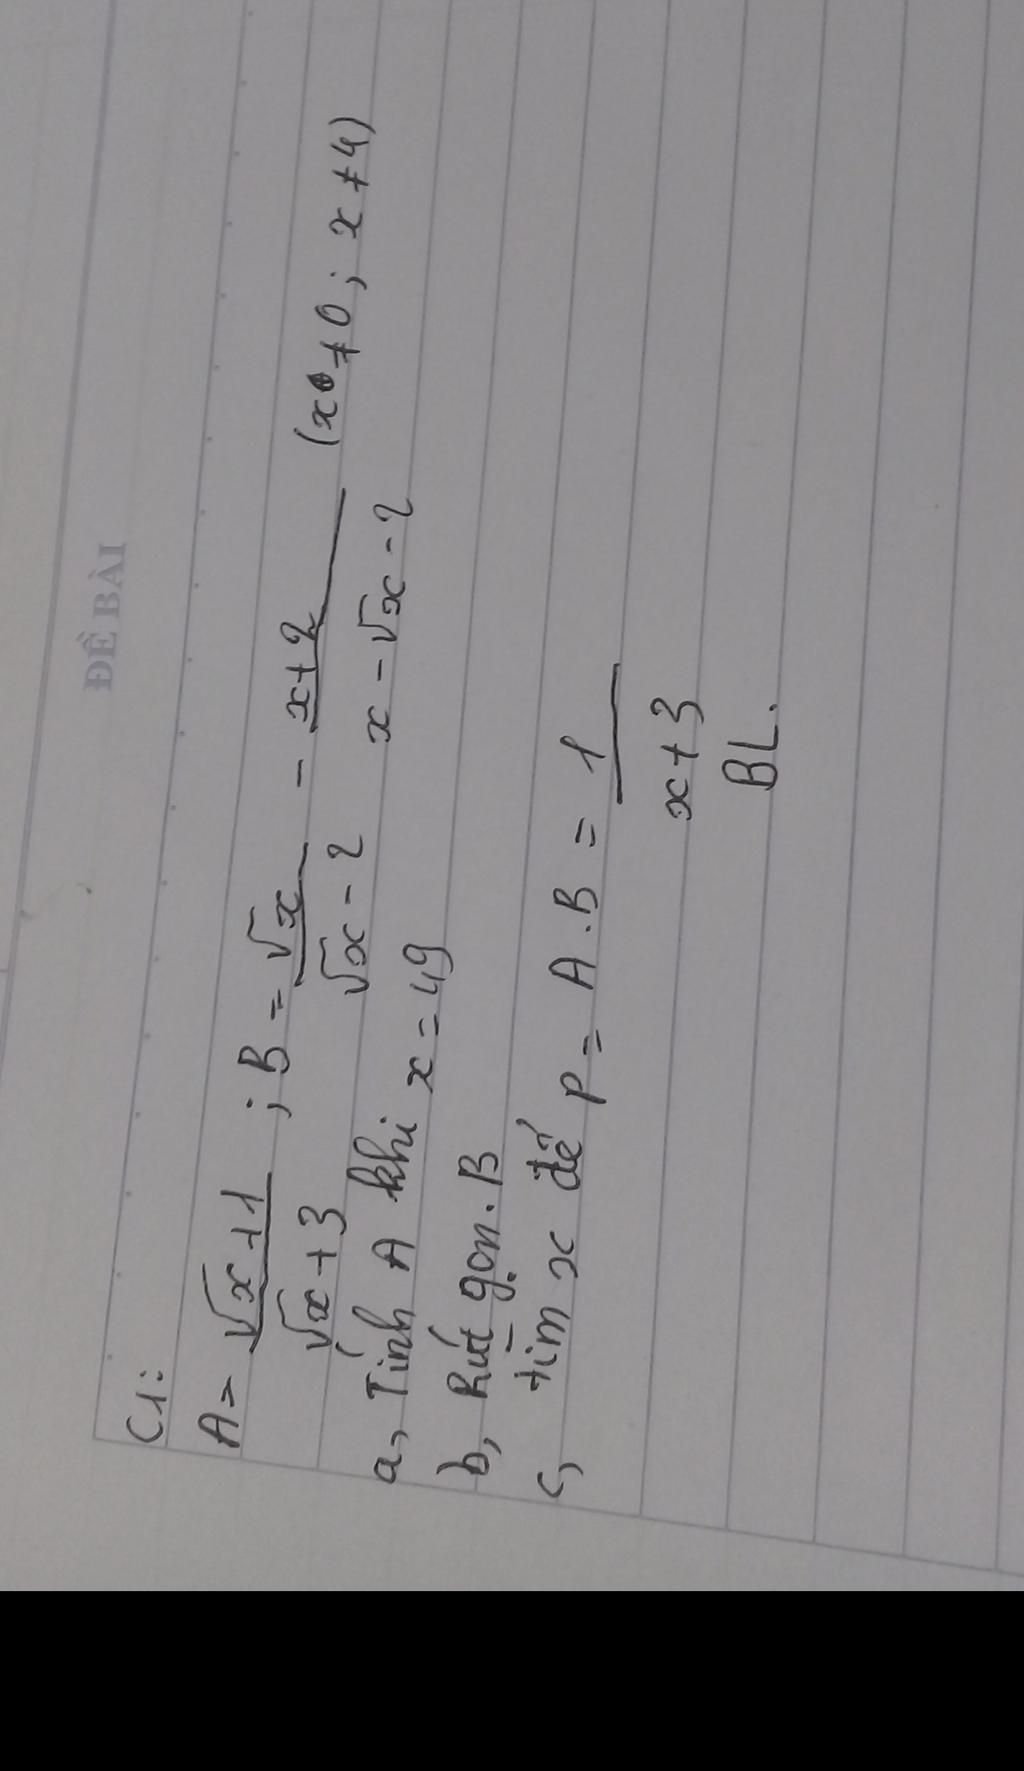 ĐỀ BÀI
C1:
A = \frac{\sqrt{x}+1}{\sqrt{x}+3} ; B = \frac{\sqrt{x}}{\sqrt{x}-2} - \frac{x+2}{x-\sqrt{x}-2} (x ≠ 0 ; x ≠ 4)
a, Tính A khi x = 49
b, Rút gọn. B
c, tìm x để P = A.B = \frac{1}{x+3}
BL.